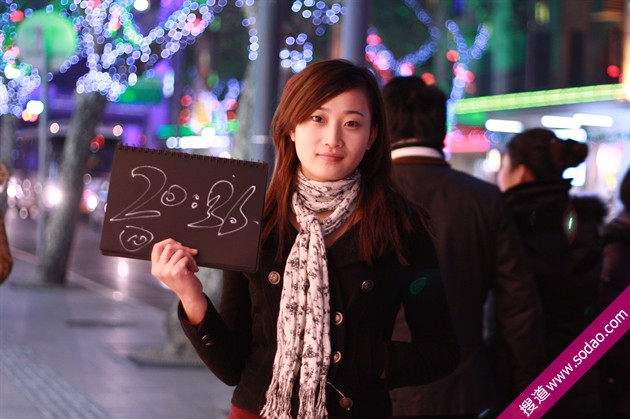 20:26
搜道 www.sodao.com